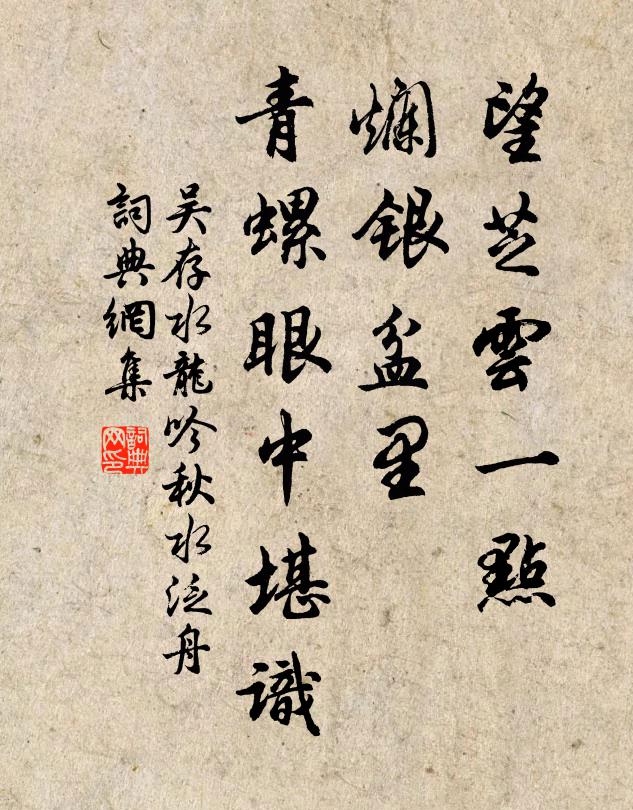 望芝雲一點
爛銀盆里
青螺眼中堪識
吴存水龍吟秋水泛舟
詞典網集
詞典
网印